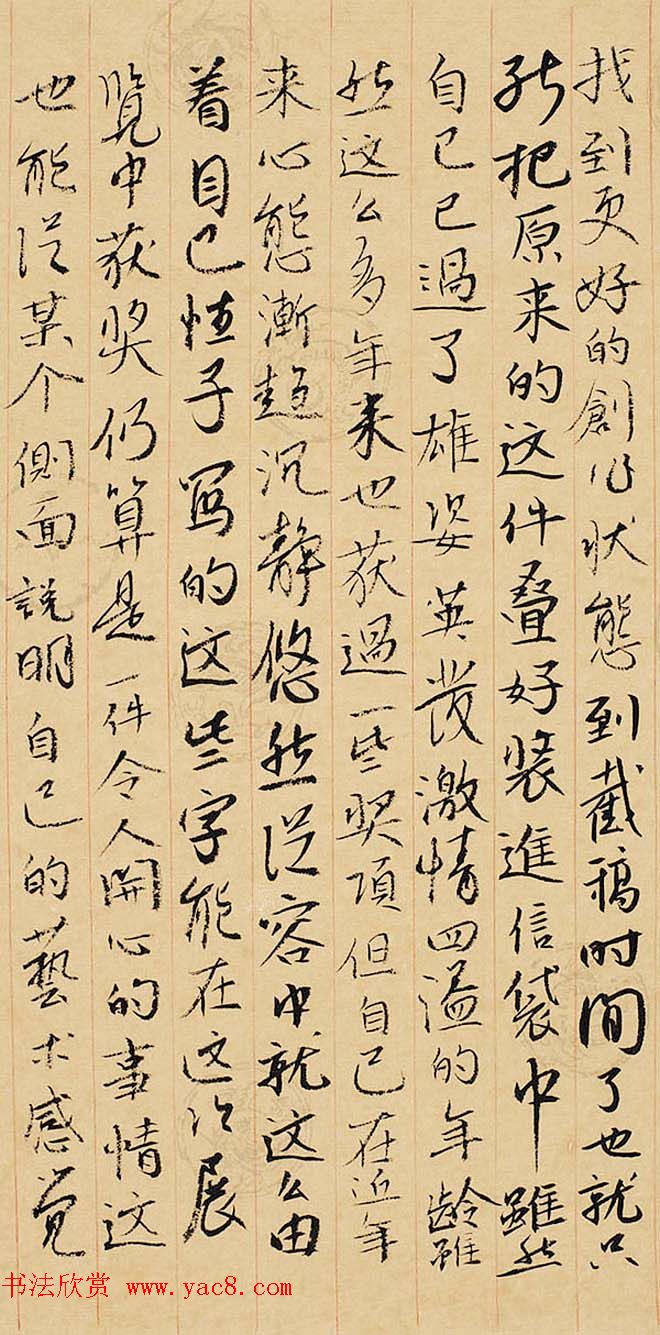 找到更好的創作状態到截稿时间了也就只
能把原来的这件叠好装進信袋中雖然
自己已過了雄姿英发激情四溢的年齡雖
然这么多年来也获過一些奖項但自己在近年
来心態漸趋沉静悠然从容中就这么由
着自己性子写的这些字能在这次展
覽中获奖仍算是一件令人開心的事情这
也能从某个側面説明自己的藝术感觉
书法欣赏 www.yac8.com